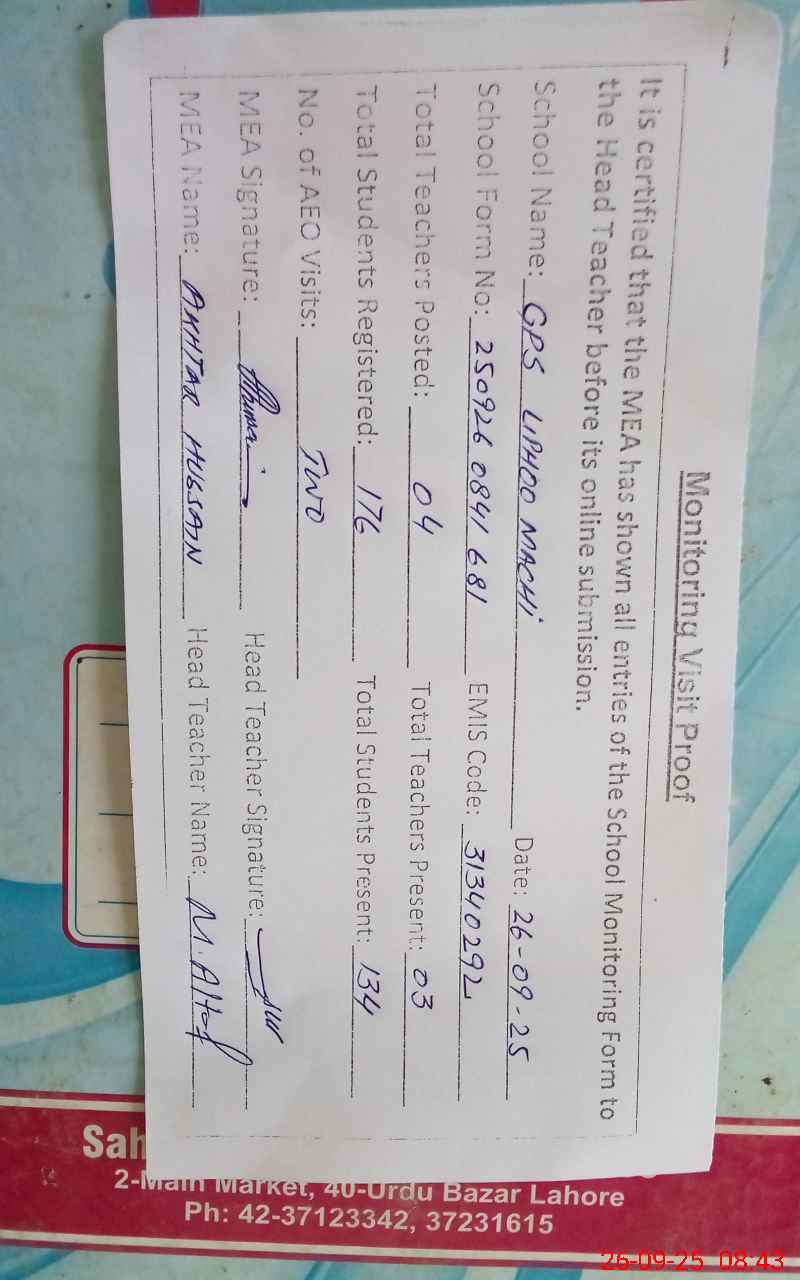 Monitoring Visit Proof
It is certified that the MEA has shown all entries of the School Monitoring Form to
the Head Teacher before its online submission.
School Name: GPS LIPHOO MACHI Date: 26-09-25
School Form No: 250926 0841 681 EMIS Code: 31340292
Total Teachers Posted: 04 Total Teachers Present: 03
Total Students Registered: 176 Total Students Present: 134
No. of AEO Visits: TWO
MEA Signature: Head Teacher Signature:
MEA Name: AKHTAR HUSSAIN Head Teacher Name: M. Altaf
Sah
2-Main Market, 40-Urdu Bazar Lahore
Ph: 42-37123342, 37231615
26-09-25 08:43